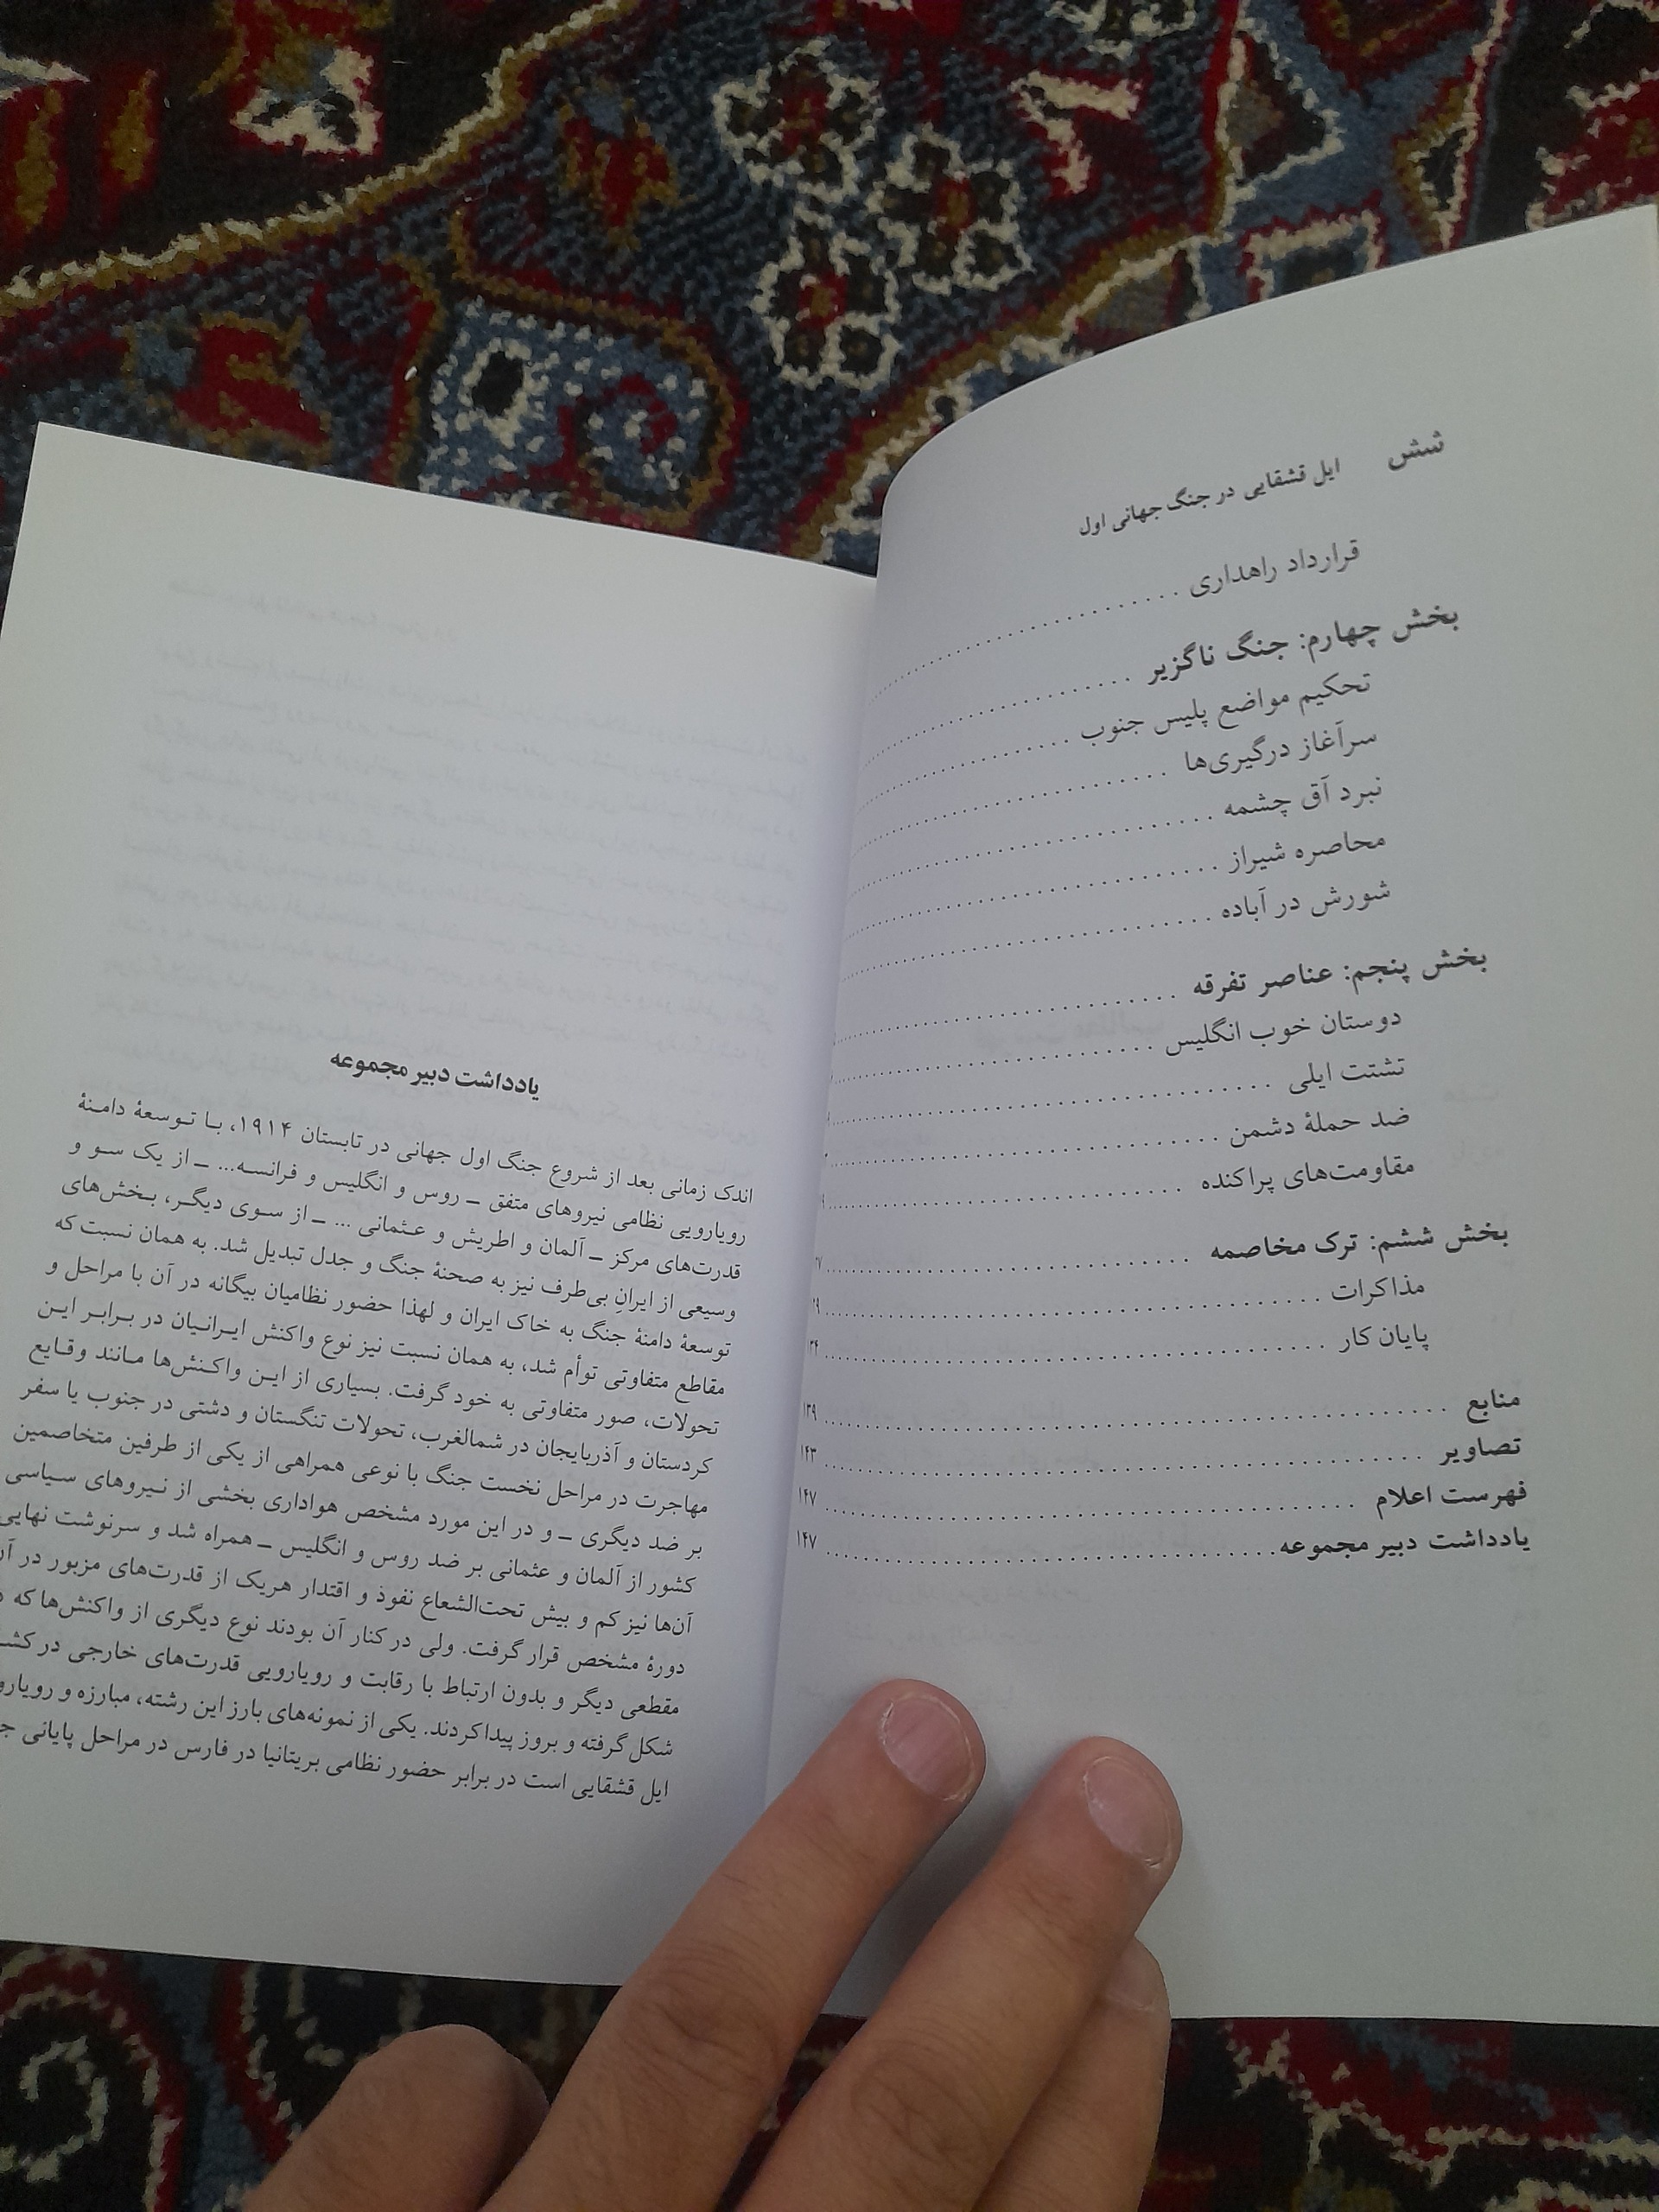 شش ایل قشقایی در جنگ جهانی اول
قرارداد راهداری
بخش چهارم: جنگ ناگزیر
تحکیم مواضع پلیس جنوب
سرآغاز درگیری‌ها
نبرد آق چشمه
محاصره شیراز
شورش در آباده
بخش پنجم: عناصر تفرقه
دوستان خوب انگلیس
تشتت ایلی
ضد حملهٔ دشمن
مقاومت‌های پراکنده
بخش ششم: ترک مخاصمه
مذاکرات
پایان کار
منابع ۱۳۹
تصاویر ۱۴۳
فهرست اعلام ۱۴۷
یادداشت دبیر مجموعه ۱۴۷
یادداشت دبیر مجموعه
اندک زمانی بعد از شروع جنگ اول جهانی در تابستان ۱۹۱۴، بـا تـوسعهٔ دامـنهٔ
رویارویی نظامی نیروهای متفق ــ روس و انگلیس و فرانسـه... ــ از یک سـو و
قدرت‌های مرکز ــ آلمان و اطریش و عـثمانی ... ــ از سـوی دیگـر، بـخش‌های
وسیعی از ایرانِ بی‌طرف نیز به صحنهٔ جنگ و جدل تبدیل شد. به همان نسبت که
توسعهٔ دامنهٔ جنگ به خاک ایران و لهذا حضور نظامیان بیگانه در آن با مراحل و
مقاطع متفاوتی توأم شد، به همان نسبت نیز نوع واکنش ایـرانـیان در بـرابـر ایـن
تحولات، صور متفاوتی به خود گرفت. بسیاری از ایـن واکـنش‌ها مـانند وقـایع
کردستان و آذربایجان در شمالغرب، تحولات تنگستان و دشتی در جنوب یا سفر
مهاجرت در مراحل نخست جنگ با نوعی همراهی از یکی از طرفین متخاصمین
بر ضد دیگری ــ و در این مورد مشخص هواداری بخشی از نـیروهای سـیاسی
کشور از آلمان و عثمانی بر ضد روس و انگلیس ــ همراه شد و سرنوشت نهایی
آن‌ها نیز کم و بیش تحت‌الشعاع نفوذ و اقتدار هریک از قدرت‌های مزبور در آن
دورهٔ مشخص قرار گرفت. ولی در کنار آن بودند نوع دیگری از واکنش‌ها که
مقطعی دیگر و بدون ارتباط با رقابت و رویارویی قدرت‌های خارجی در
شکل گرفته و بروز پیدا کردند. یکی از نمونه‌های بارز این رشته، مبارزه و
ایل قشقایی است در برابر حضور نظامی بریتانیا در فارس در مراحل پایانی